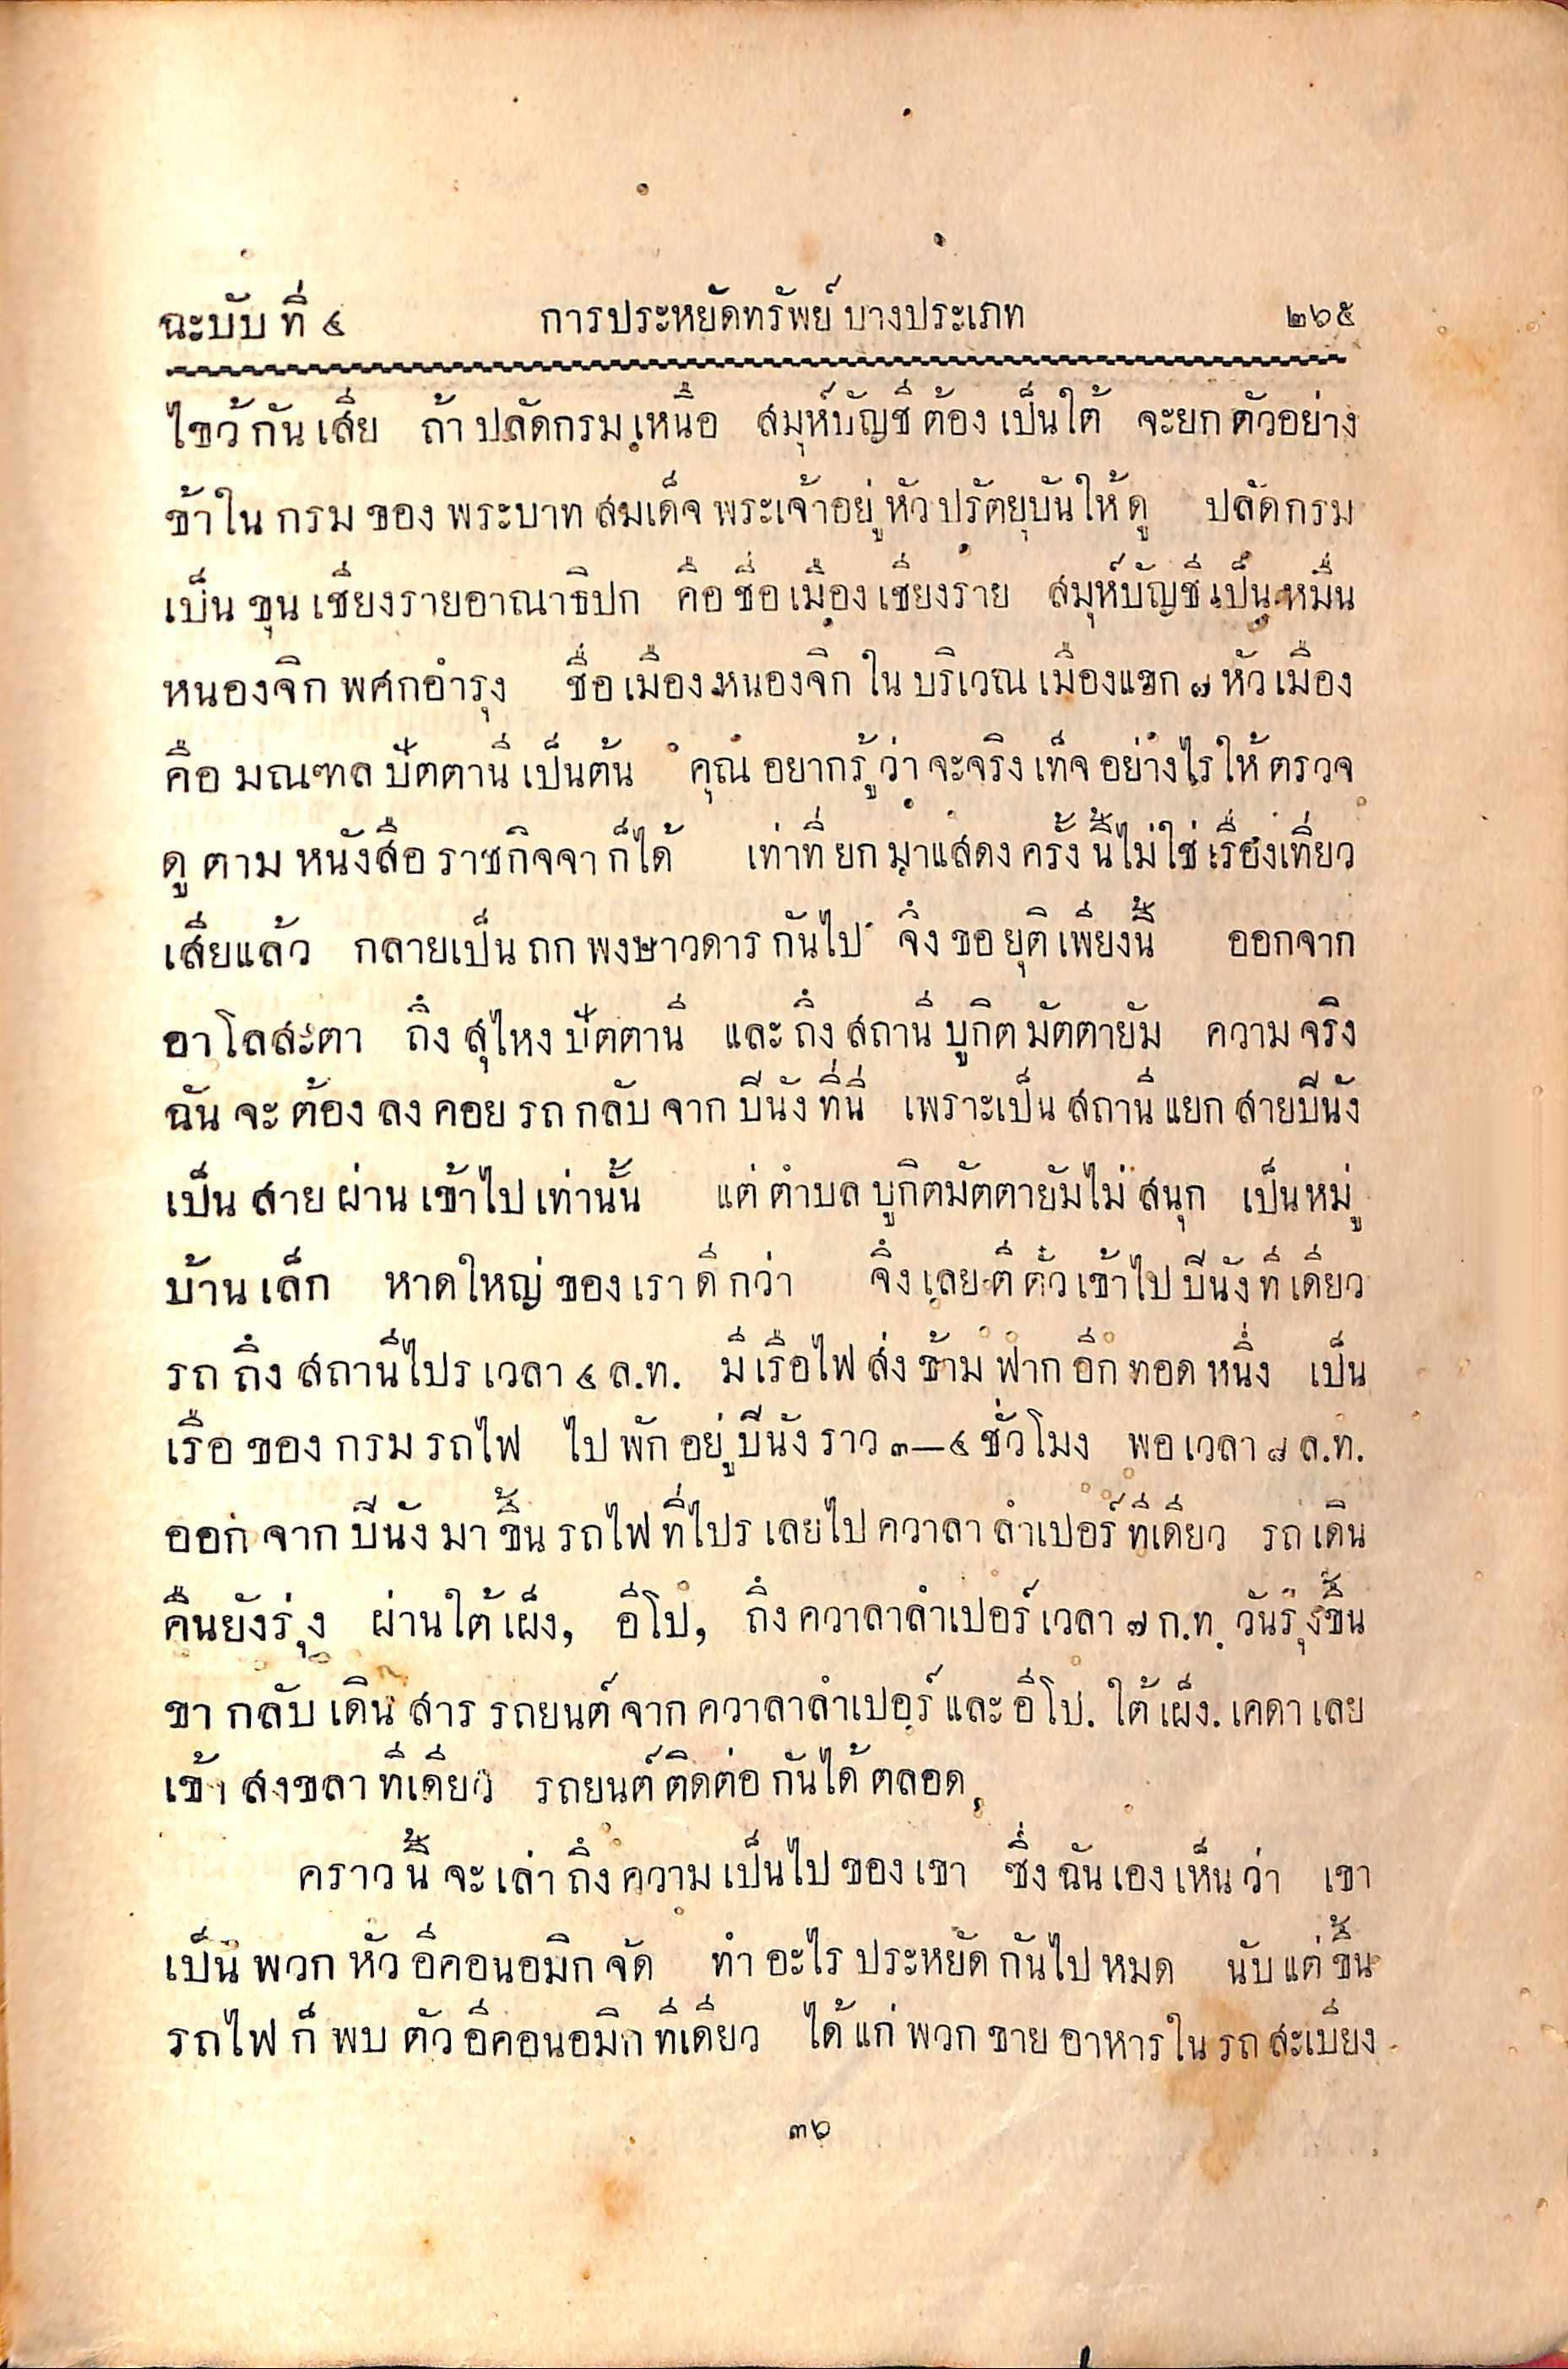 ฉะบับ ที่ ๔ การประหยัดทรัพย์ บางประเภท ๒๖๕
ไขว้ กัน เสีย ถ้า ปลัดกรม เหนือ สมุห์บัญชี ต้อง เป็นใต้ จะยก ตัวอย่าง
ข้า ใน กรม ของ พระบาท สมเด็จ พระเจ้าอยู่ หัว ปรัตยุบัน ให้ ดู ปลัดกรม
เป็น ขุน เชียงรายอาณาธิปก คือ ชื่อ เมือง เชียงราย สมุห์บัญชี เป็น หมื่น
หนองจิก พศกอำรุง ชื่อ เมือง หนองจิก ใน บริเวณ เมืองแขก ๗ หัว เมือง
คือ มณฑล ปัตตานี เป็นต้น คุณ อยากรู้ ว่า จะจริง เท็จ อย่างไร ให้ ตรวจ
ดู ตาม หนังสือ ราชกิจจา ก็ได้ เท่าที่ ยก มาแสดง ครั้ง นี้ไม่ ใช่ เรื่องเที่ยว
เสียแล้ว กลายเป็น ถก พงษาวดาร กันไป จึ่ง ขอ ยุติ เพียงนี้ ออกจาก
อาโลสะตา ถึง สุไหง ปัตตานี และ ถึง สถานี บูกิต มัตตายัม ความ จริง
ฉัน จะ ต้อง ลง คอย รถ กลับ จาก บีนัง ที่นี่ เพราะเป็น สถานี แยก สายบีนัง
เป็น สาย ผ่าน เข้าไป เท่านั้น แต่ ตำบล บูกิตมัตตายัมไม่ สนุก เป็นหมู่
บ้าน เล็ก หาดใหญ่ ของ เรา ดี กว่า จึ่ง เลย ตี ตั๋ว เข้าไป บีนัง ที เดียว
รถ ถึง สถานีไปร เวลา ๔ ล.ท. มี เรือไฟ ส่ง ข้าม ฟาก อีก ทอด หนึ่ง เป็น
เรือ ของ กรม รถไฟ ไป พัก อยู่ บีนัง ราว ๓—๔ ชั่วโมง พอ เวลา ๘ ล.ท.
ออก จาก บีนัง มา ขึ้น รถไฟ ที่ไปร เลยไป ควาลา ลำเปอร์ ทีเดียว รถ เดิน
คืนยังรุ่ง ผ่านใต้ เผ็ง, อีโป, ถึง ควาลาลำเปอร์ เวลา ๗ ก.ท. วันรุ่งขึ้น
ขา กลับ เดิน สาร รถยนต์ จาก ควาลาลำเปอร์ และ อีโป. ใต้ เผ็ง. เคดา เลย
เข้า สงขลา ทีเดียว รถยนต์ ติดต่อ กันได้ ตลอด
คราว นี้ จะ เล่า ถึง ความ เป็นไป ของ เขา ซึ่ง ฉัน เอง เห็น ว่า เขา
เป็น พวก หัว อีคอนอมิก จัด ทำ อะไร ประหยัด กันไป หมด นับ แต่ ขึ้น
รถไฟ ก็ พบ ตัว อีคอนอมิก ทีเดียว ได้ แก่ พวก ขาย อาหาร ใน รถ สะเบียง
๓๖